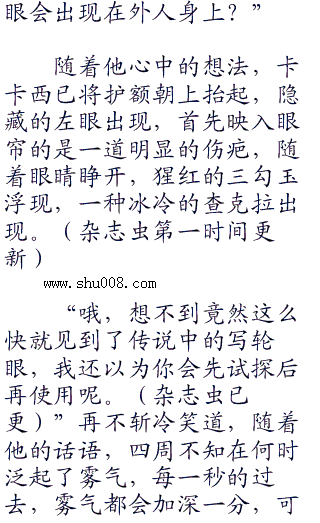 眼会出现在外人身上？”
随着他心中的想法，卡
卡西已将护额朝上抬起，隐
藏的左眼出现，首先映入眼
帘的是一道明显的伤疤，随
着眼睛睁开，猩红的三勾玉
浮现，一种冰冷的查克拉出
现。（杂志虫第一时间更
新）
www.shu008.com
“哦，想不到竟然这么
快就见到了传说中的写轮
眼，我还以为你会先试探后
再使用呢。（杂志虫已
更）”再不斩冷笑道，随着
他的话语，四周不知在何时
泛起了雾气，每一秒的过
去，雾气都会加深一分，可